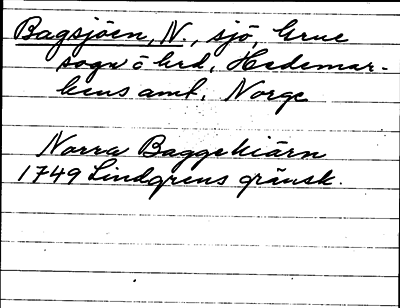 Bagsjöen, N., sjö, Grue
sogn o hrd, Hedemar-
kens amt, Norge
Norra Baggekiärn
1749 Lindgrens gränsk.